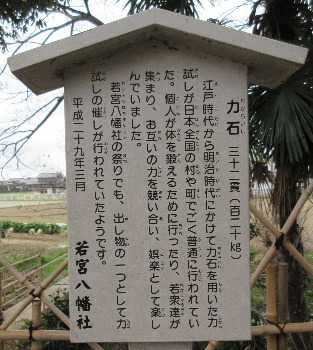 力石 三十二貫(百二十kg)
江戸時代から明治時代にかけて力石を用いた力
試しが日本全国の村や町でごく普通に行われてい
た。個人が体を鍛えるために行ったり、若衆達が
集まり、お互いの力を競い合い、娯楽として楽し
んでいました。
若宮八幡社の祭りでも、出し物の一つとして力
試しの催しが行われていたようです。
平成二十九年三月
若宮八幡社